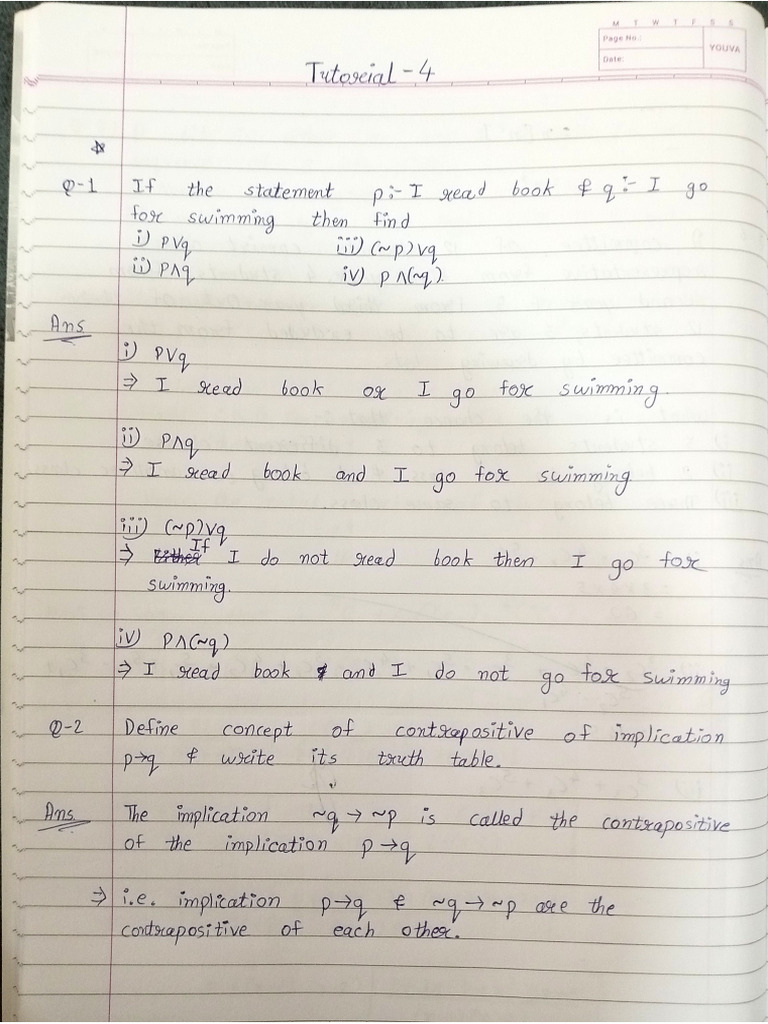 M T W T F S S
Page No.:
YOUVA
Date:
Tutorial - 4
Q-1 If the statement p:- I read book & q:- I go
for swimming then find
i) p∨q iii) (~p)∨q
ii) p∧q iv) p∧(~q).
Ans
i) p∨q
⇒ I read book or I go for swimming.
ii) p∧q
⇒ I read book and I go for swimming.
iii) (~p)∨q
⇒ If I do not read book then I go for
swimming.
iv) p∧(~q)
⇒ I read book and I do not go for swimming
Q-2 Define concept of contrapositive of implication
p→q & write its truth table.
Ans The implication ~q→~p is called the contrapositive
of the implication p→q
⇒ i.e. implication p→q & ~q→~p are the
contrapositive of each other.